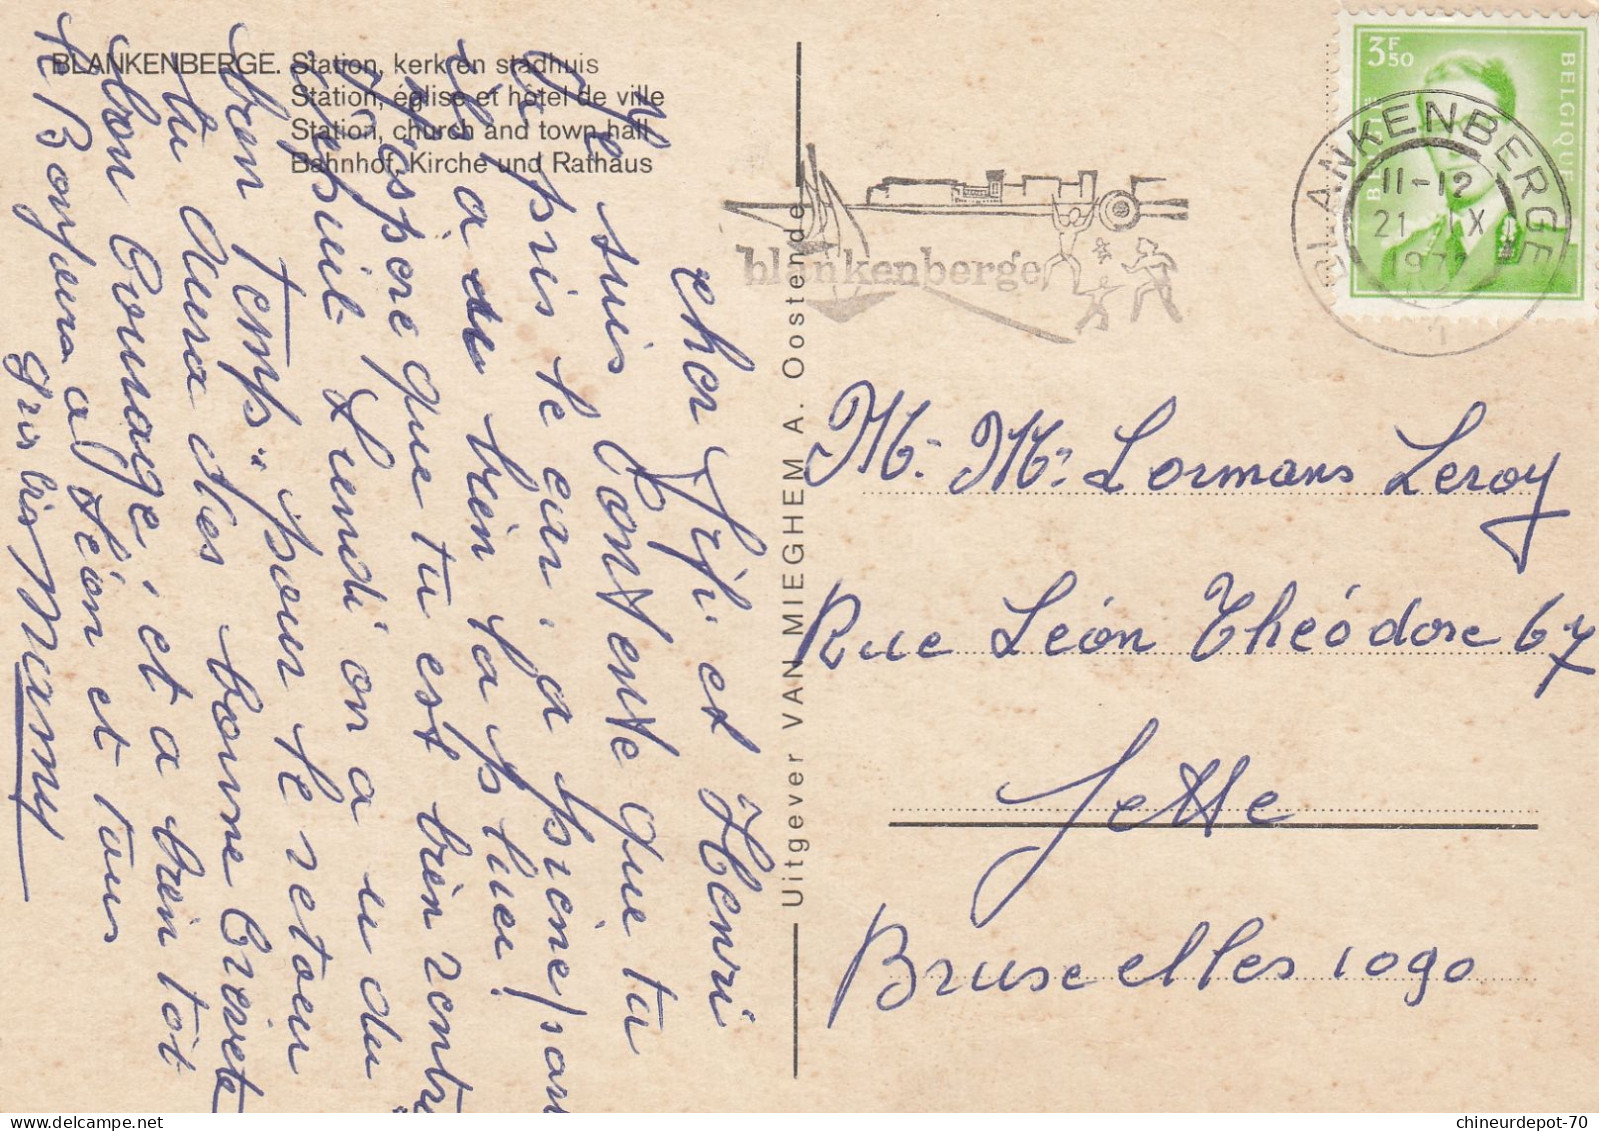 BLANKENBERGE. Station, kerk en stadhuis
Station, église et hôtel de ville
Station, church and town hall
Bahnhof, Kirche und Rathaus
Uitgever VAN MIEGHEM A. Oostende
blankenberge
BLANKENBERGE
11-12
21 IX
1
3F50
BELGIQUE
BELGIË
cher Fifi et Henri
Je suis Contente que ta
pris le car. a peine
on a eu bien la pluei!
J'éspére que tu est bien rentré
Lundi on a eu du
ben temps. pour le retour
tu aura des bonne
bon Courage, et a bien tôt
le Bonjour a Léon et tous
gros bis Mamy
M. Mme Lormans Leroy
Rue Léon Théodore 67
Jette
Bruxelles 1090
chineurdepot-70